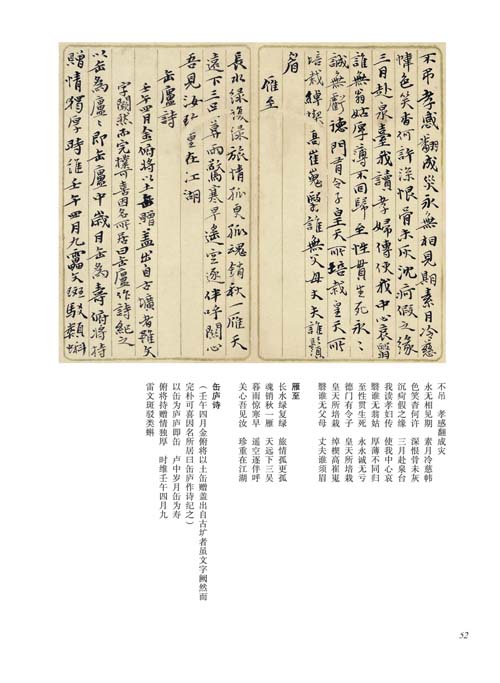 不吊孝感翻成災永無相見期素月冷慈
幃色笑杳何許深恨骨未灰沈疴假之緣
三月赴泉臺我讀孝婦傳使我中心哀翳
誰無翁姑厚薄不同歸至性貫生死永〻
誠無虧德門有令子皇天所培栽皇天所
培栽綽楔高崔嵬翳誰無父母丈夫誰須
眉
雁至
長水綠復綠旅情孤更孤魂銷秋一雁天
遠下三吳暮雨驚寒早遙空逐伴呼關心
吾見汝珍重在江湖
缶廬詩
壬午四月金俯將以土缶贈蓋出自古壙者雖文
字闕然而完樸可喜因名所居曰缶廬作詩紀之
以缶為廬〻即缶廬中歲月缶為壽俯將持
贈情獨厚時維壬午四月九靁文斑駁類蝌
不吊 孝感翻成灾
永无相见期 素月冷慈帏
色笑杳何许 深恨骨未灰
沉疴假之缘 三月赴泉台
我读孝妇传 使我中心哀
翳谁无翁姑 厚薄不同归
至性贯生死 永永诚无亏
德门有令子 皇天所培栽
皇天所培栽 绰楔高崔嵬
翳谁无父母 丈夫谁须眉
雁至
长水绿复绿 旅情孤更孤
魂销秋一雁 天远下三吴
暮雨惊寒早 遥空逐伴呼
关心吾见汝 珍重在江湖
缶庐诗
(壬午四月金俯将以土缶赠盖出自古圹者虽文字阙然而
完朴可喜因名所居曰缶庐作诗纪之)
以缶为庐庐即缶 庐中岁月缶为寿
俯将持赠情独厚 时维壬午四月九
雷文斑驳类蝌
52